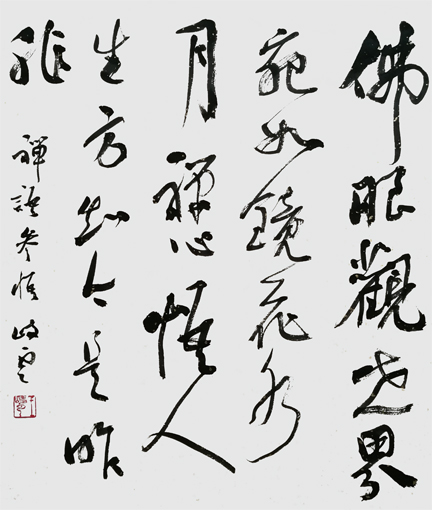 佛眼觀世界
宛如鏡花水
月禪心悟人
生方知今是昨
非
禪語參悟